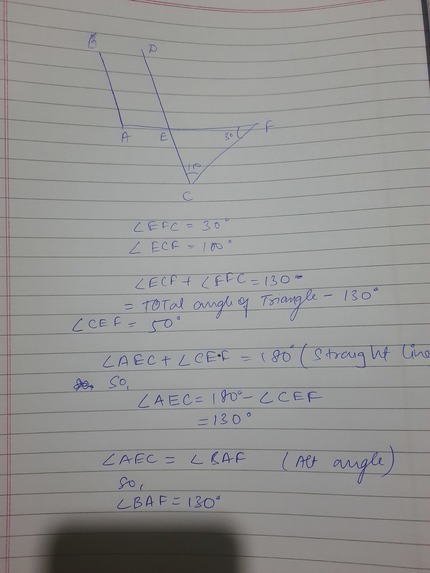 B D
A E 30° F
C
∠EFC = 30°
∠ECF = 100°
∠ECF + ∠EFC = 130°
= TOTAL angle of Triangle - 130°
∠CEF = 50°
∠AEC + ∠CEF = 180° (Straight Line
So,
∠AEC = 180° - ∠CEF
= 130°
∠AEC = ∠BAF (Alt angle)
So,
∠BAF = 130°